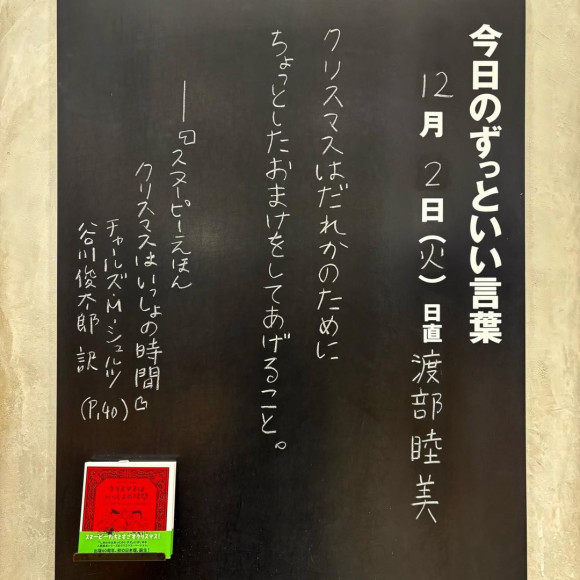 今日のずっといい言葉
12月2日(火)日直 渡部睦美
クリスマスはだれかのために
ちょっとしたおまけをしてあげること。
―『スヌーピーえほん
クリスマスはいっしょの時間』
チャールズ・M・シュルツ
谷川俊太郎 訳 (P.40)
クリスマスは
いっしょの時間
スヌーピーたちとすごすクリスマス!